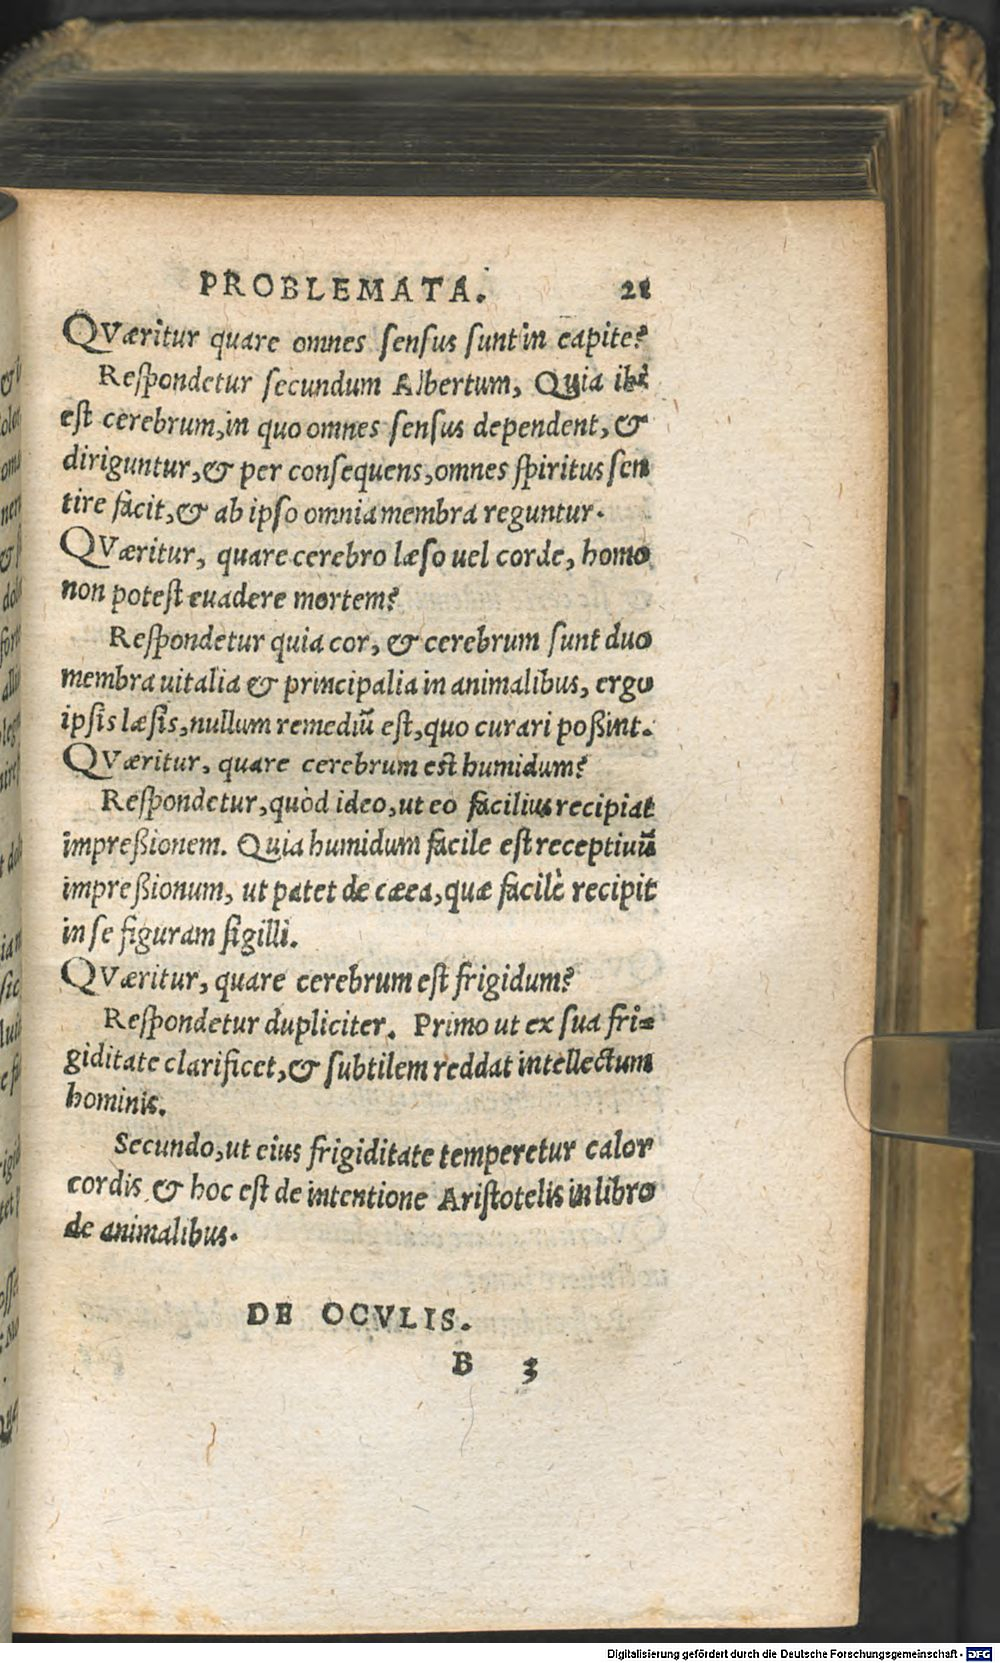 PROBLEMATA. 21
QVæritur quare omnes sensus sunt in capite?
Respondetur secundum Albertum, Quia ibi
est cerebrum, in quo omnes sensus dependent, &
diriguntur, & per consequens, omnes spiritus sen
tire facit, & ab ipso omnia membra reguntur.
QVæritur, quare cerebro læso uel corde, homo
non potest euadere mortem?
Respondetur quia cor, & cerebrum sunt duo
membra uitalia & principalia in animalibus, ergo
ipsis læsis, nullum remediū est, quo curari poßint.
QVæritur, quare cerebrum est humidum?
Respondetur, quòd ideo, ut eo facilius recipiat
impreßionem. Quia humidum facile est receptiuū
impreßionum, ut patet de cæea, quæ facilè recipit
in se figuram sigilli.
QVæritur, quare cerebrum est frigidum?
Respondetur dupliciter. Primo ut ex sua fri=
giditate clarificet, & subtilem reddat intellectum
hominis.
Secundo, ut eius frigiditate temperetur calor
cordis & hoc est de intentione Aristotelis in libro
de animalibus.
DE OCVLIS.
B 3
Digitalisierung gefördert durch die Deutsche Forschungsgemeinschaft - DFG